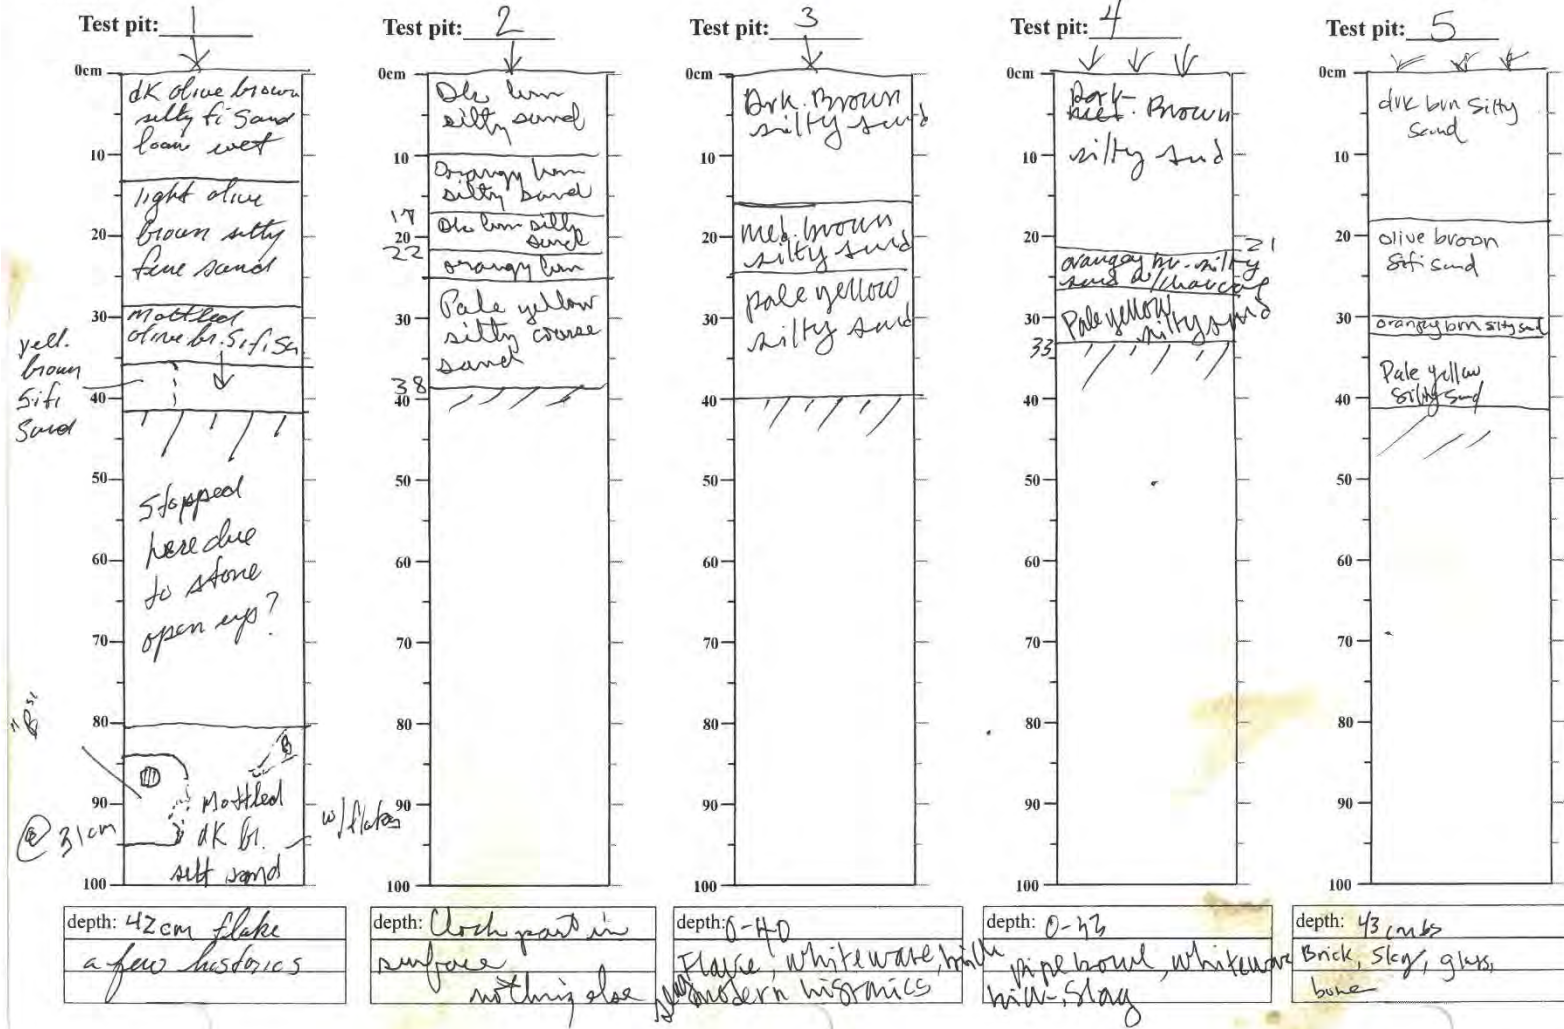 Test pit: 1
0cm
10
20
30
40
50
60
70
80
90
100
dK olive brown
silty fi Sand
loam wet
light olive
brown silty
fine sand
Mottled
olive br. Si fi Sa
yell.
brown
Si fi
Sand
Stopped
here due
to stone
open up?
"B"
B
@ 31cm
Mottled
dK br.
silt sand
w/flakes
depth: 42cm flake
a few historics
Test pit: 2
0cm
10
17
20
22
30
38
40
50
60
70
80
90
100
Dk brn
silty sand
Orangy brn
silty sand
Dk brn silty
sand
orangy brn
Pale yellow
silty coarse
sand
depth: Clock part in
surface
nothing else
Test pit: 3
0cm
10
20
30
40
50
60
70
80
90
100
Drk. Brown
silty sand
Med. brown
silty sand
pale yellow
silty sand
depth: 0-40
Flake, whiteware, brick
slag modern historics
Test pit: 4
0cm
10
20
21
30
33
40
50
60
70
80
90
100
Dark
Med. Brown
silty sand
orangey br. silty
sand w/charcoal
Pale yellow silty sand
depth: 0-33
pipe bowl, whiteware
brick, slag
Test pit: 5
0cm
10
20
30
40
50
60
70
80
90
100
drk brn Silty
Sand
olive broon
Si fi sand
orangey brn silty sand
Pale yellow
Silty Sand
depth: 43 cmbs
Brick, Slag, glass,
bone